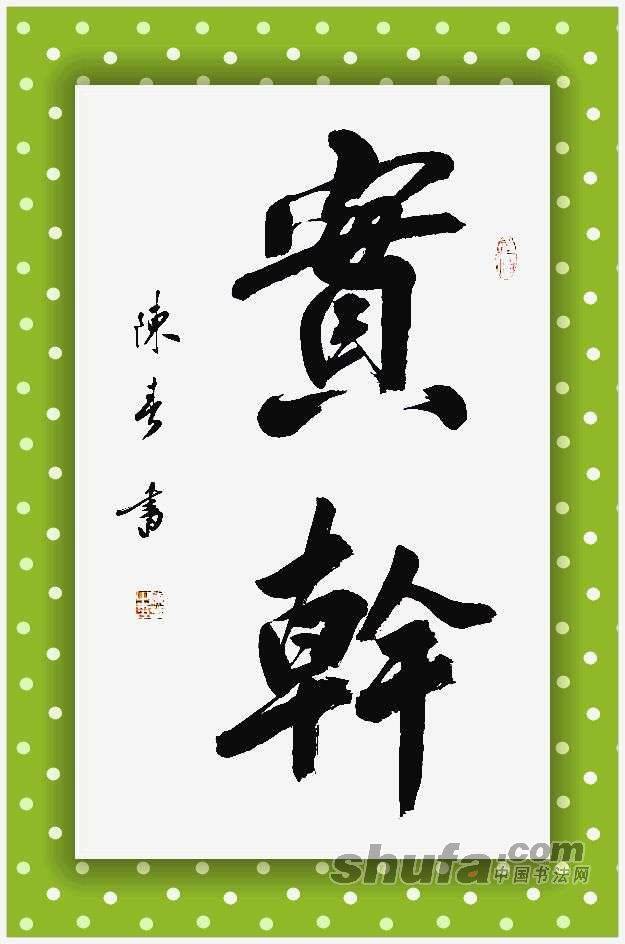 實幹
陳春書
shufa.com
中国书法网